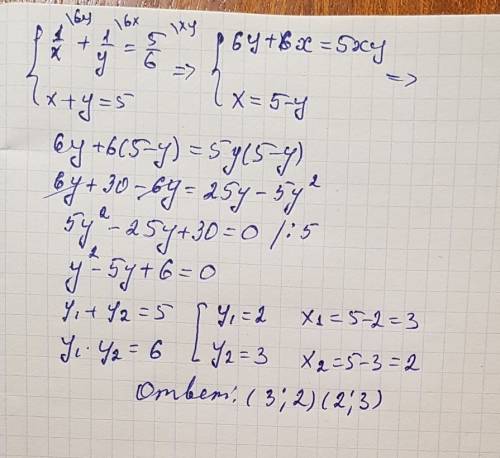 { 1/x \6y + 1/y \6x = 5/6 \xy => { 6y + 6x = 5xy =>
{ x + y = 5 { x = 5 - y
6y + 6(5 - y) = 5y(5 - y)
6y + 30 - 6y = 25y - 5y²
5y² - 25y + 30 = 0 /: 5
y² - 5y + 6 = 0
y₁ + y₂ = 5 [ y₁ = 2 x₁ = 5 - 2 = 3
y₁ · y₂ = 6 [ y₂ = 3 x₂ = 5 - 3 = 2
Ответ: (3; 2) (2; 3)